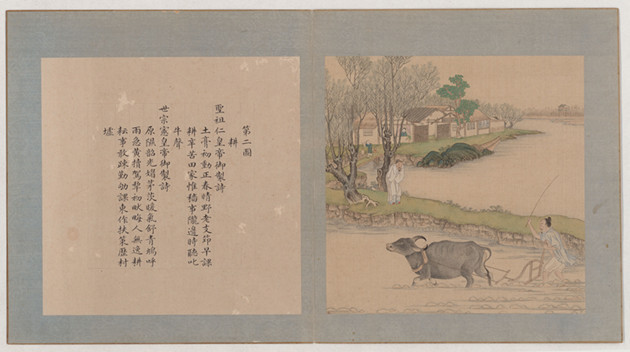 第二圖
耕
聖祖仁皇帝御製詩
土膏初動正春晴野老支筇早課
耕辛苦田家惟穡事隴邊時聽叱
牛聲
世宗憲皇帝御製詩
原隰韶光媚茅茨暖氣舒青鳩呼
雨急黃犢駕犂初畎畮人無逸耕
耘事敢疎勤劬課東作扶策歷村
墟